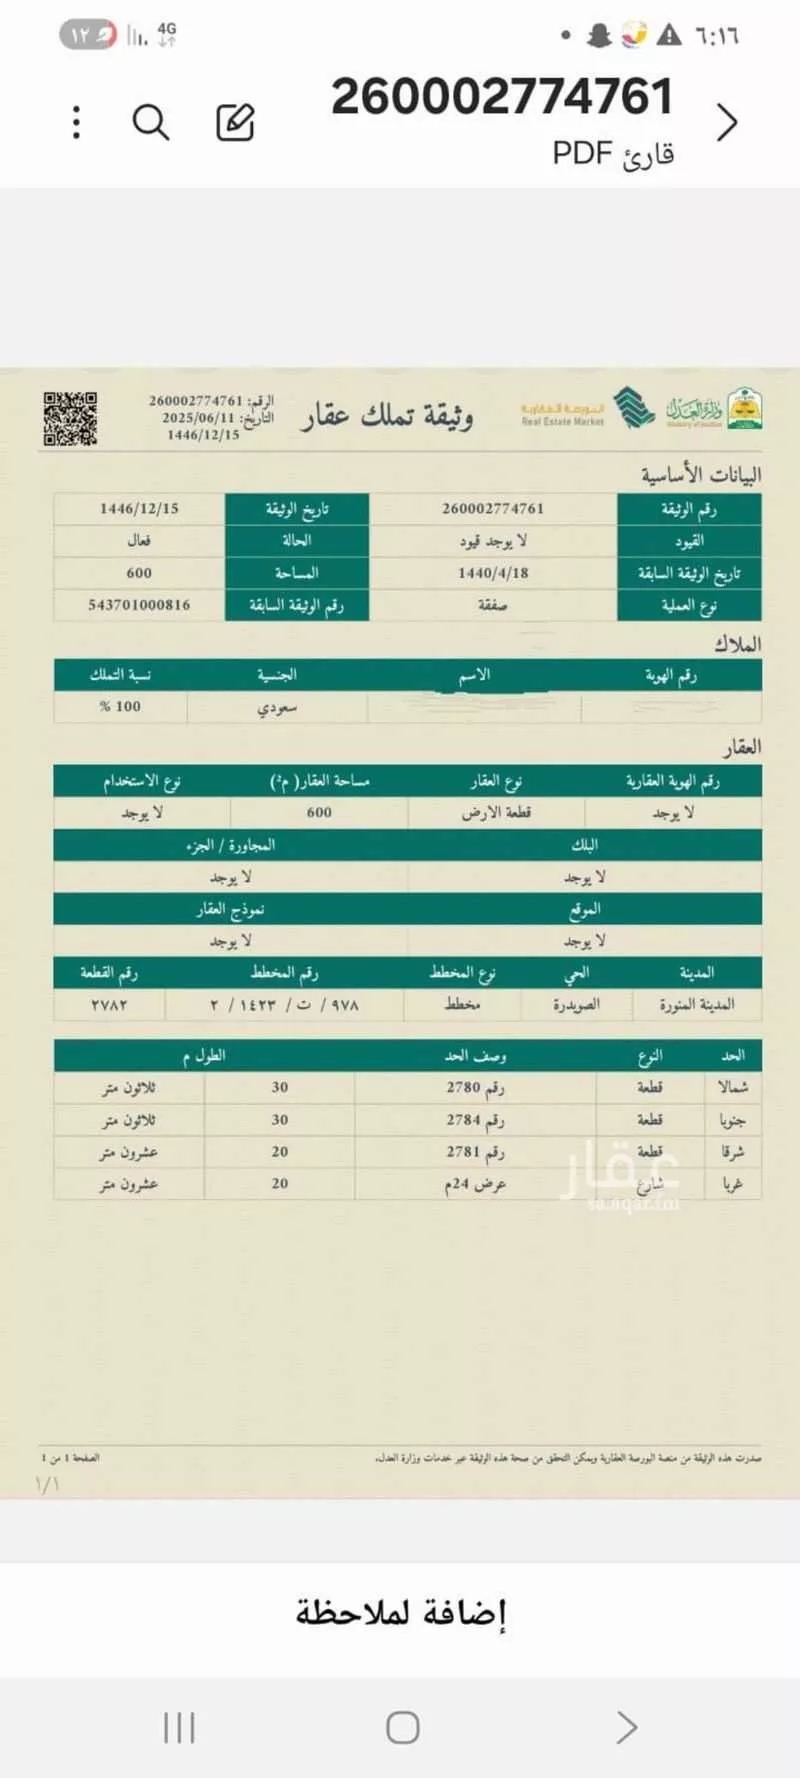 ٦:١٦
4G
١٢
260002774761
قارئ PDF
وزارة العدل
Ministry of Justice
البورصة العقارية
Real Estate Market
وثيقة تملك عقار
الرقم: 260002774761
التاريخ: 2025/06/11
1446/12/15
البيانات الأساسية
رقم الوثيقة 260002774761 تاريخ الوثيقة 1446/12/15
القيود لا يوجد قيود الحالة فعال
تاريخ الوثيقة السابقة 1440/4/18 المساحة 600
نوع العملية صفقة رقم الوثيقة السابقة 543701000816
الملاك
رقم الهوية الاسم الجنسية نسبة التملك
سعودي 100 %
العقار
رقم الهوية العقارية نوع العقار مساحة العقار( م²) نوع الاستخدام
لا يوجد قطعة الارض 600 لا يوجد
البلك المجاورة / الجزء
لا يوجد لا يوجد
الموقع نموذج العقار
لا يوجد لا يوجد
المدينة الحي نوع المخطط رقم المخطط رقم القطعة
المدينة المنورة الصويدرة مخطط ٩٧٨ / ت / ١٤٢٣ / ٢ ٢٧٨٢
الحد النوع وصف الحد الطول م
شمالا قطعة رقم 2780 30 ثلاثون متر
جنوبا قطعة رقم 2784 30 ثلاثون متر
شرقا قطعة رقم 2781 20 عشرون متر
غربا شارع عرض 24م 20 عشرون متر
عقار
sa.aqar.fm
صدرت هذه الوثيقة من منصة البورصة العقارية ويمكن التحقق من صحة هذه الوثيقة عبر خدمات وزارة العدل.
الصفحة 1 من 1
١/١
إضافة لملاحظة